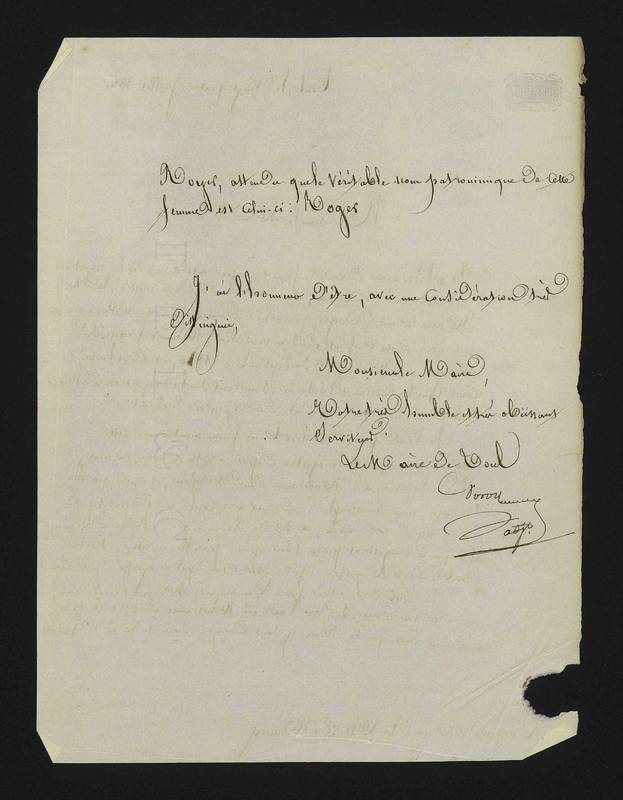 Royer, attendu que le véritable nom patronimique de cette
femme est celui-ci : Roger
J'ai l'honneur d'être, avec une considération très
distinguée,
Monsieur le Maire,
Votre très humble et très obéissant
Serviteur.
Le Maire de Toul